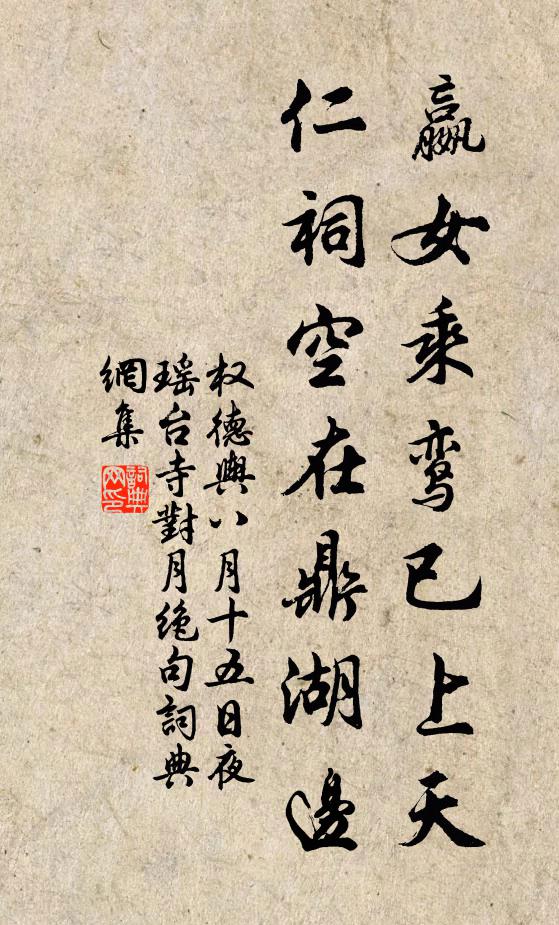 嬴女乘鸾已上天
仁祠空在鼎湖邊
权德輿八月十五日夜
瑶台寺對月绝句詞典
網集
詞典
网印